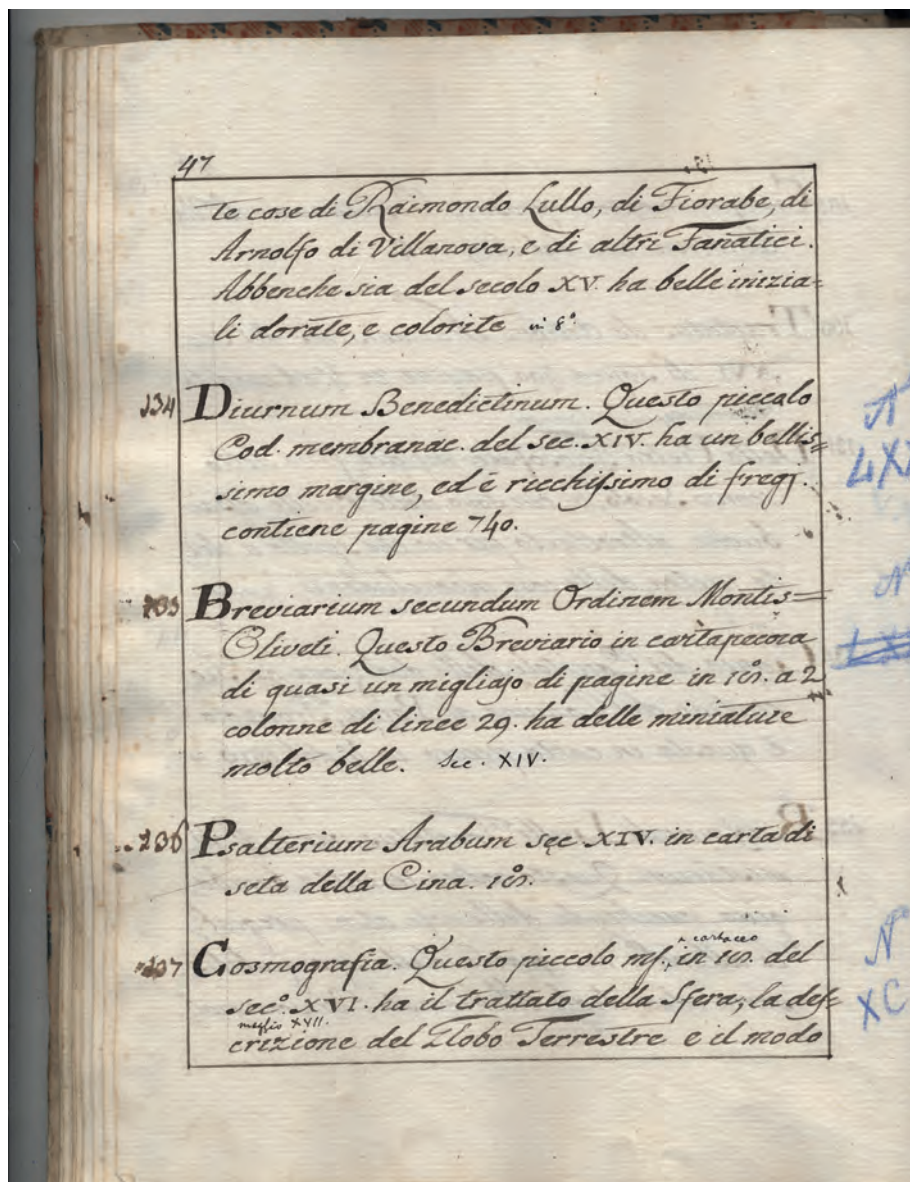 47
te cose di Raimondo Lullo, di Fiorabe, di
Arnolfo di Villanova, e di altri Fanatici.
Abbenche sia del secolo XV. ha belle inizia=
li dorate, e colorite in 8º
134 Diurnum Benedictinum. Questo piccolo
Cod. membranac. del sec. XIV. ha un bellis=
simo margine, ed è ricchissimo di fregj.
contiene pagine 740.
135 Breviarium secundum Ordinem Montis=
Oliveti. Questo Breviario in cartapecora
di quasi un migliajo di pagine in a 2
colonne di linee 29. ha delle miniature
molto belle. Sec. XIV.
136 Psalterium Arabum sec XIV. in carta di
seta della Cina.
137 Cosmografia. Questo piccolo mſ. cartaceo in del
secº. XVI. ha il trattato della Sfera, la des=
meglio XVII.
crizione del Globo Terrestre e il modo
N
LX
N
N
XC